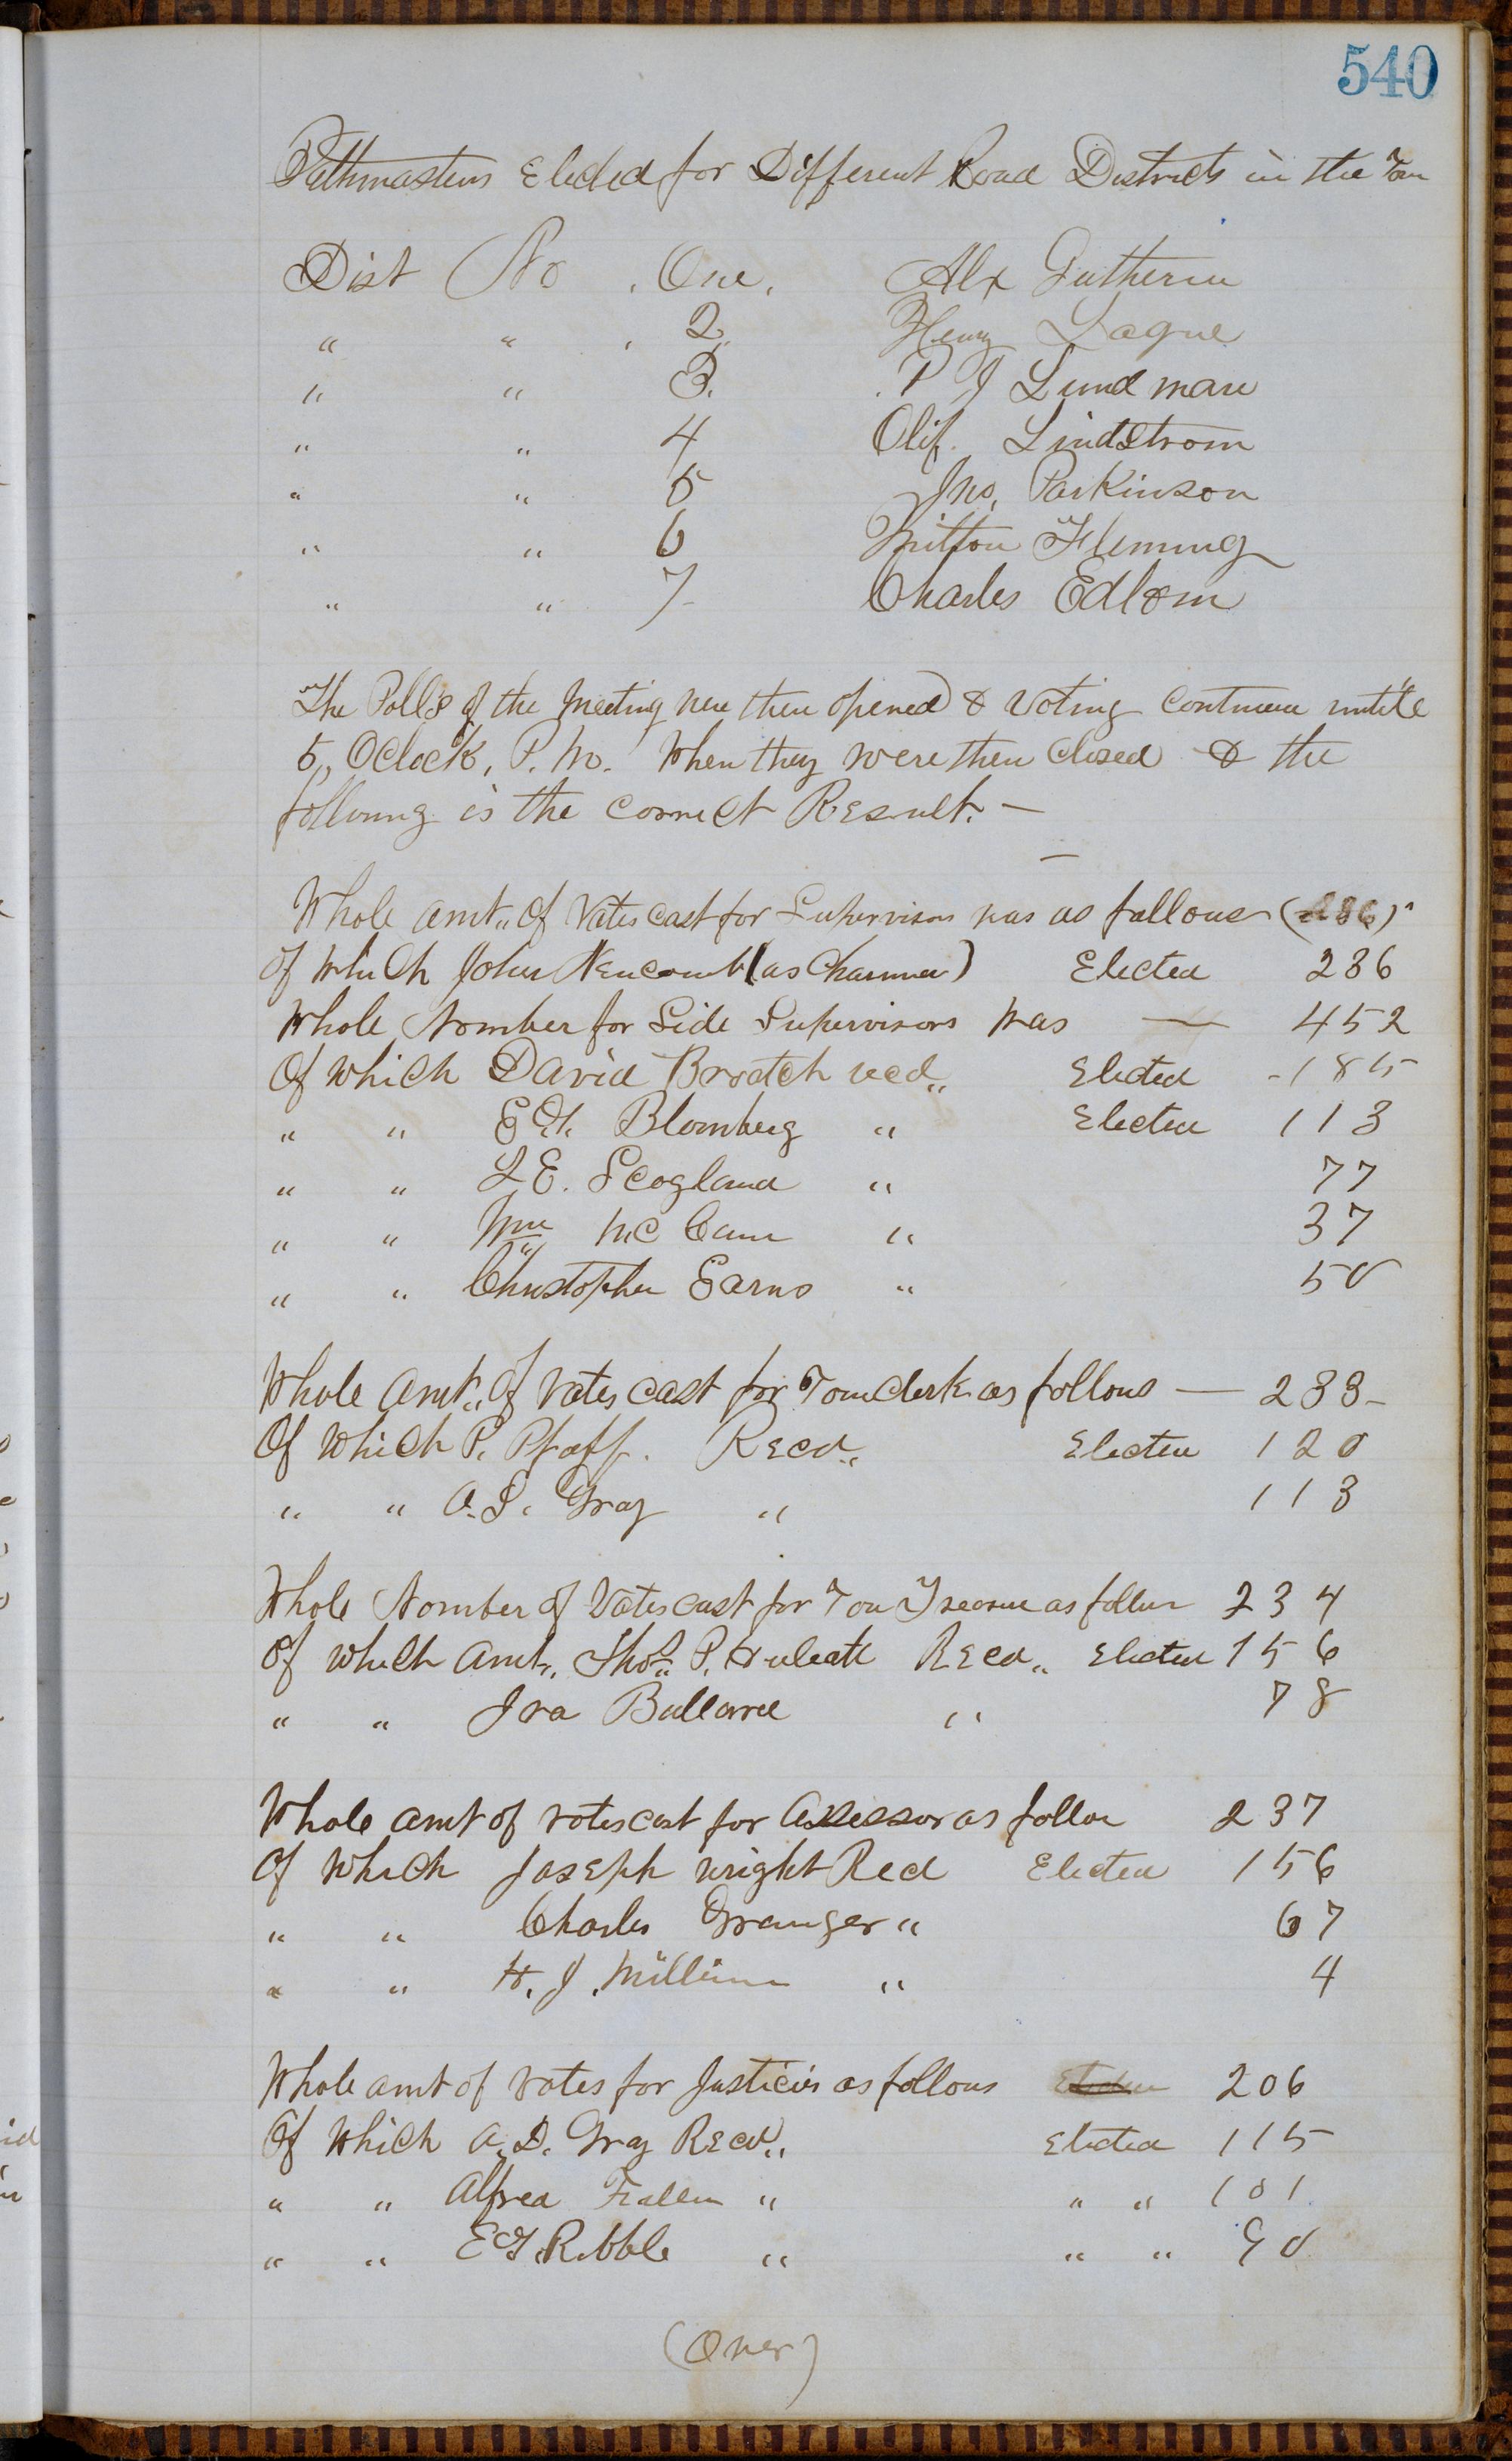 540
Pathmasters Elected for Different Road Districts in the Town
Dist No . One . Alx Gutherin
" " . 2 Henry Laque
" " 3. P J Lundmare
" " 4 Olif. Lindstrom
" " 5 Jno, Parkinson
" " 6 Fleming
" " 7 Charles Edlom
The Polls of the Meeting were then opened & Voting Continued untill
5,, OClock, P. M. When they were then Closed & the
following is the Correct Result. —
Whole amt,, Of Votes cast for Supervisors was as follows (236)
Of Which John Newcomb (as Chairman) Elected 236
Whole Nomber for Side Supervisors Was — 452
Of Which David Brotch recd,, Elected 185
" " Blomberg " Elected 113
" " L E. Scogland " 77
" " Wm McCann " 37
" " Christopher Earns " 50
Whole Amt,, Of Votes cast for Town Clerk as follows — 233
Of Which P. Pfaff. Recd,, Elected 120
" " A. D. Gray " 113
Whole Nomber of Votes cast for Town Treasurer as follows 234
Of Which Amt,, Thos P. Recd,, Elected 156
" " Ira Ballard " 78
Whole amt of votes cast for Assessor as follow 237
Of Which Joseph Wright Recd Elected 156
" " Charles Granger " 67
" " H. J. " 4
Whole amt of Votes for Justicis as follows Elected 206
Of Which A. D. Gray Recd,, Elected 115
" " Alfred " " " 101
" " E G Ribble " " " 90
(Over)